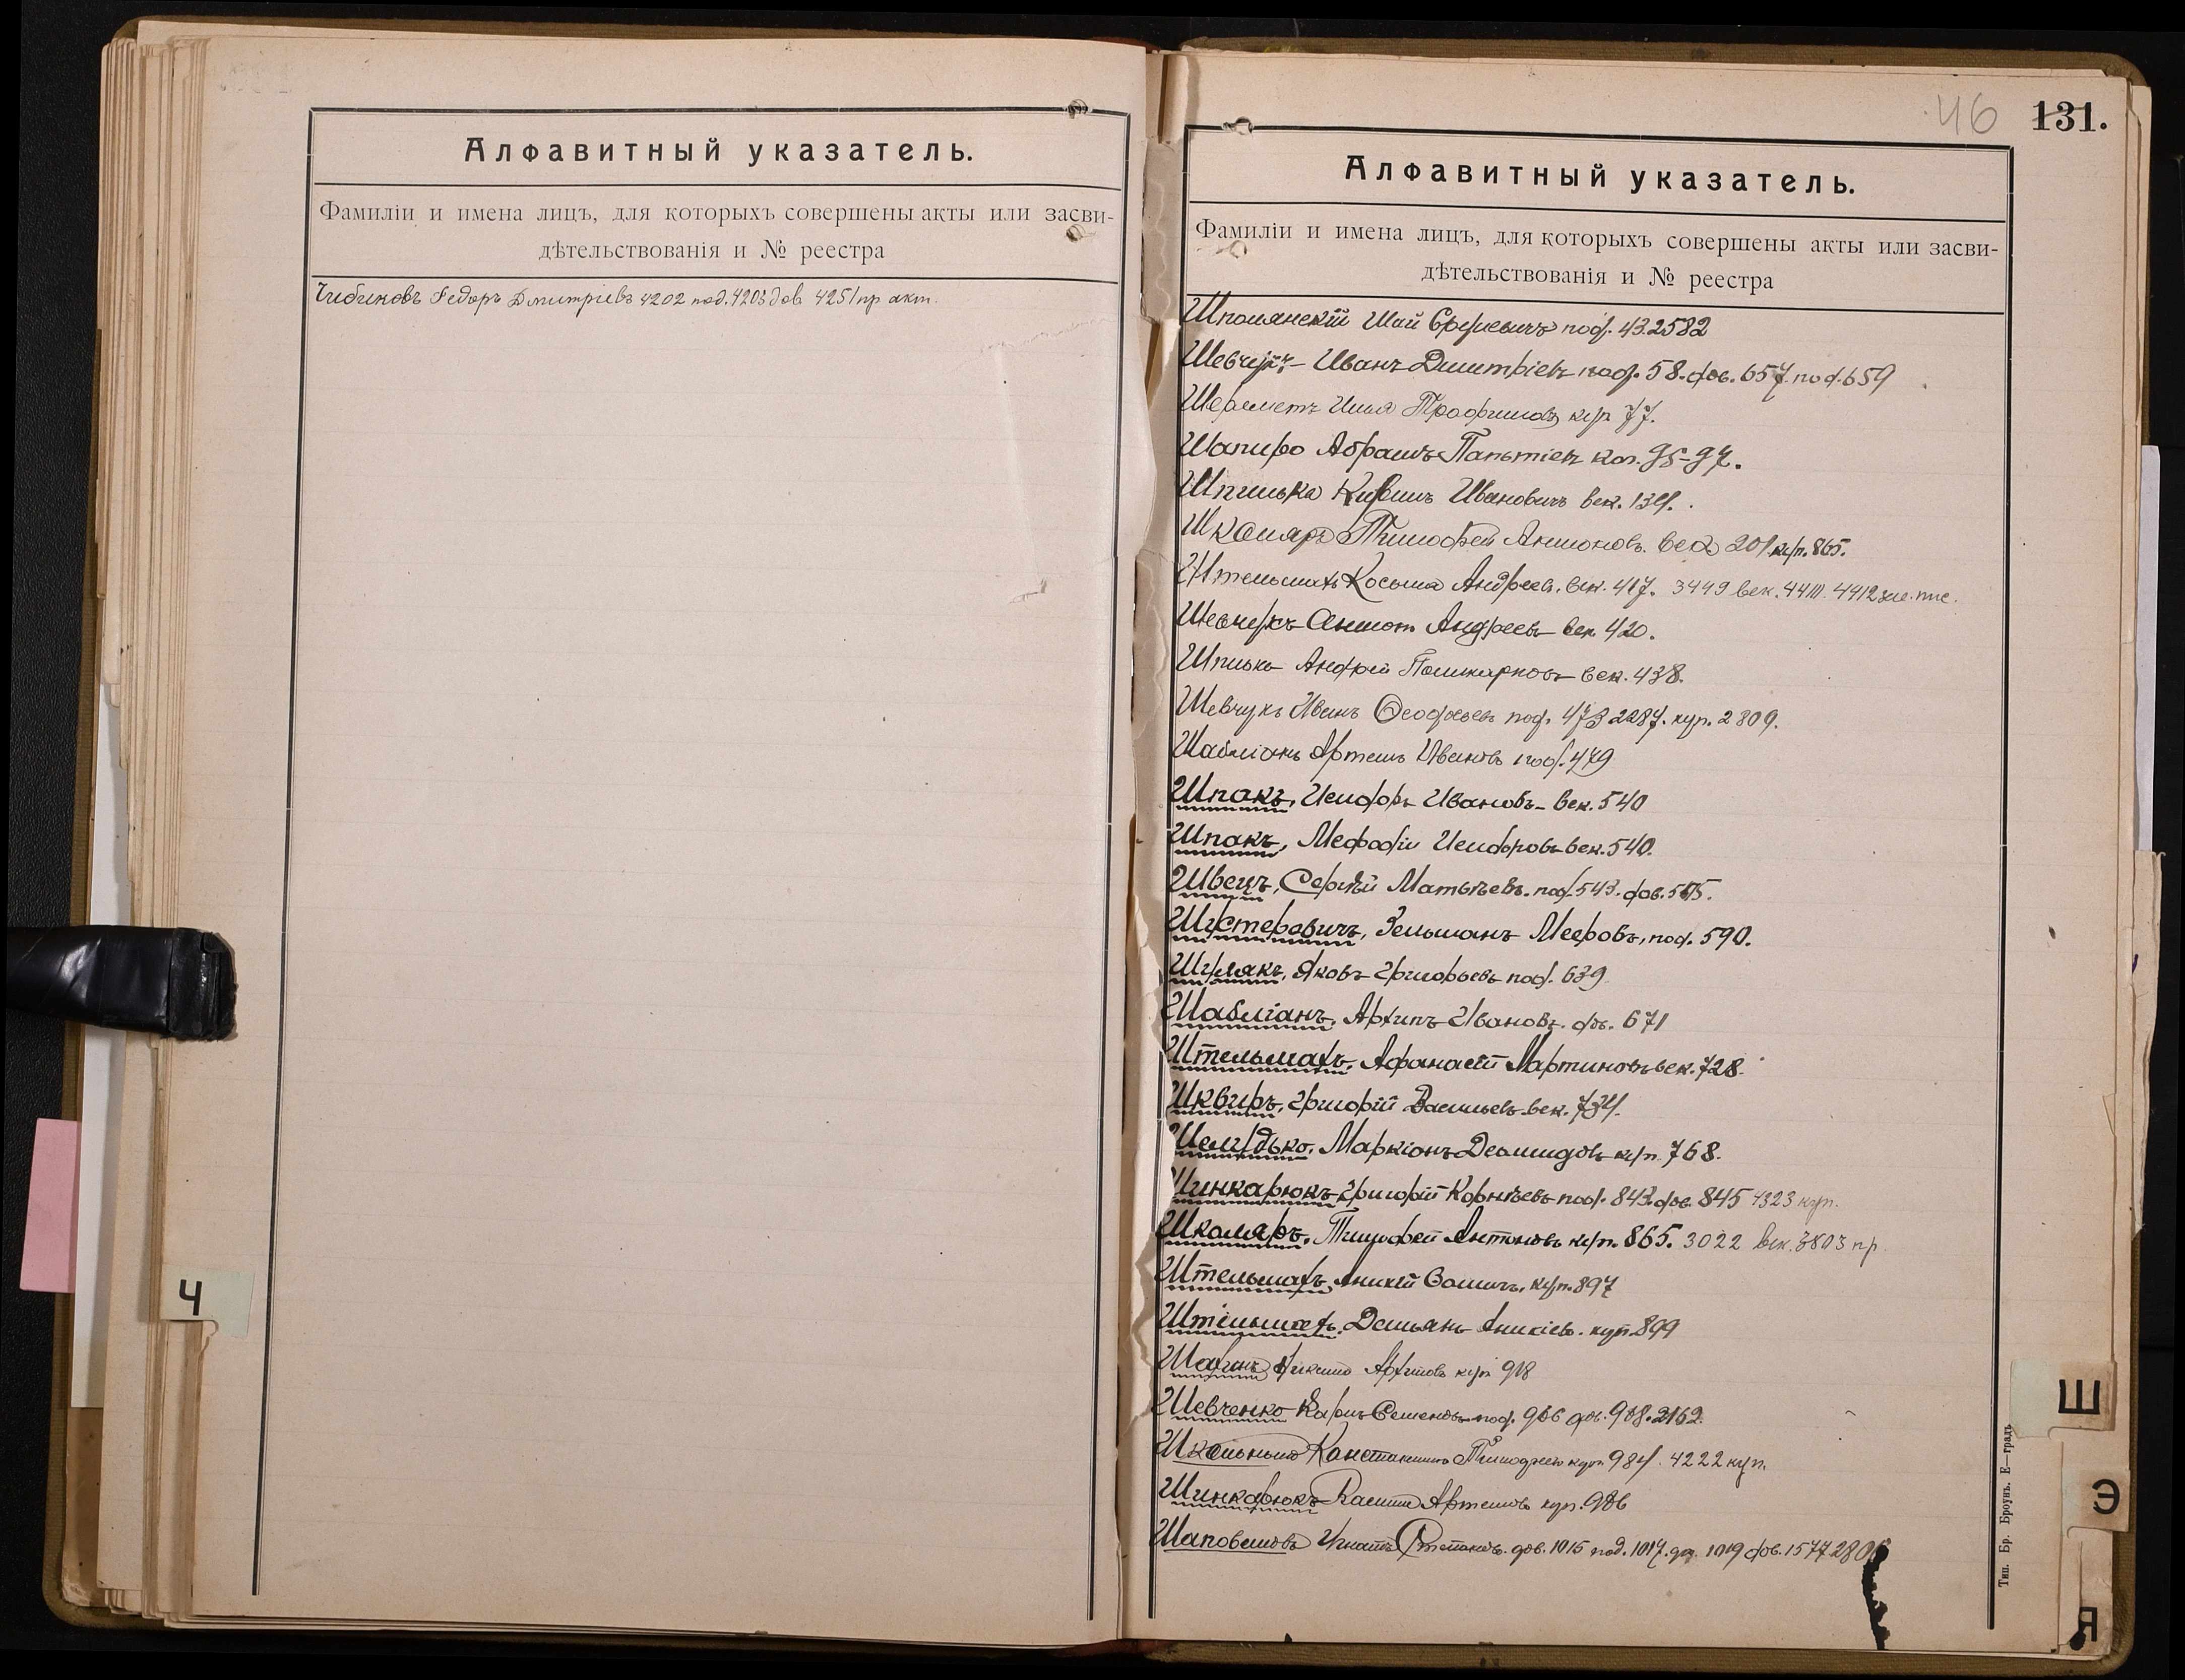 Алфавитный указатель.
Фамиліи и имена лицъ, для которыхъ совершены акты или засви-
дѣтельствованія и № реестра
Чибиковъ Федоръ Дмитріевъ 4202 под. 4203 дов 4251 пр акт.
Ч
46 131.
Алфавитный указатель.
Фамиліи и имена лицъ, для которыхъ совершены акты или засви-
дѣтельствованія и № реестра
Шполянскій Шай под. 43.2582
Иванъ Дмитріевъ под. 58. дов. 657. под. 659
Шереметъ Илья Трофимовъ куп 77.
Шапиро Абрамъ коп. 95-97.
Шпилька Ивановичъ век. 134.
Школяръ Тимофей Антоновъ. век 201 куп. 865.
Штельмахъ Косьма Андреев. век. 417. 3449 век. 4411. 4412
Андреевъ век 420.
Шпилька Андрей Поликарповъ век. 438.
Шевчукъ Иванъ под. 473 2287. куп. 2809.
Шабліанъ Артемъ Ивановъ под. 479
Шпакъ, Исидоръ Ивановъ - век. 540
Шпакъ, Мефодій Исидоровъ век. 540.
Швецъ, Сергѣй Матвѣевъ. под. 543. дов. 545.
Шустеровичъ, Зельманъ Мееровъ, под. 590.
Шумякъ, Яковъ Григорьевъ под. 639
Шабліанъ, Архипъ Ивановъ. дов. 671
Штельмахъ, Афанасій Мартиновъ век. 728.
Шквиръ, Григорій Васильевъ век. 734.
Шелудько, Маркіонъ Демидовъ куп. 768.
Шинкарюкъ, Григорій Корнѣевъ под. 843. дов. 845 4323 куп.
Школяръ, Тимофей Антоновъ куп. 865. 3022 век. 3803 пр
Штельмахъ, Аникій куп. 897
Штельмахъ, Демьянъ Аникіевъ. куп. 899
Архиповъ куп 918
Шевченко Карпъ Семеновъ под. 906 дов. 908. 2162.
Школьный Константинъ Тимофеевъ куп 984. 4222 куп.
Шинкарюкъ Василій Артемовъ куп. 986
Шаповаловъ Игнатъ Степановъ. дов. 1015 под. 1017. дог. 1019 дов. 1577 280
Тип. Бр. Броунъ. Е—градъ
Ш
Э
Я